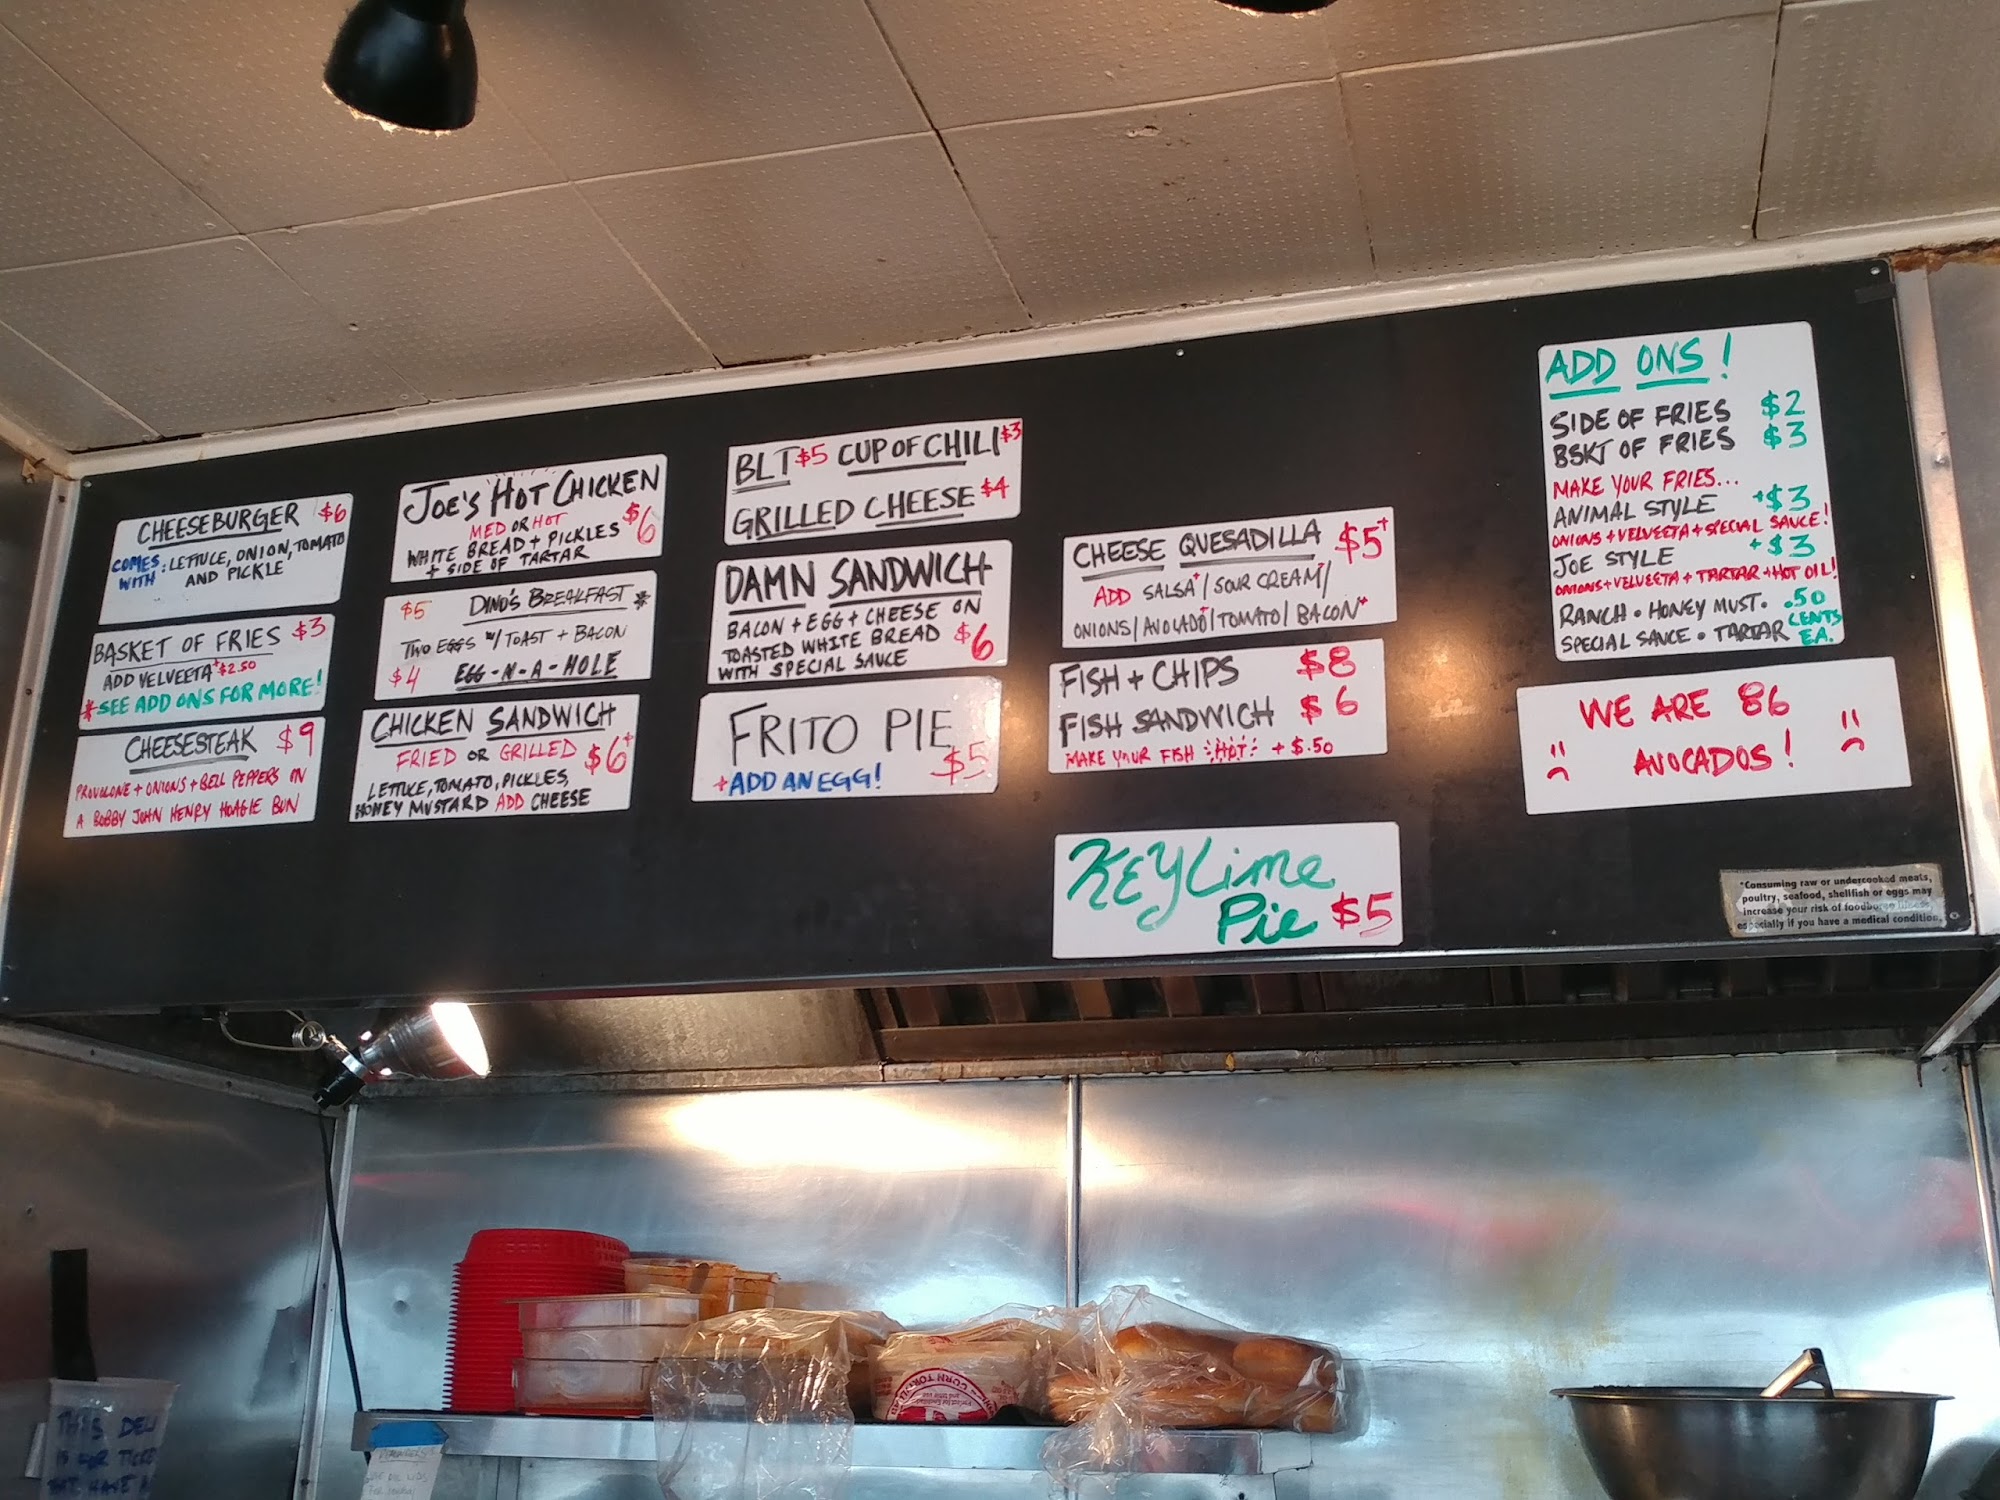 CHEESEBURGER $6
COMES WITH : LETTUCE, ONION, TOMATO
AND PICKLE
BASKET OF FRIES $3
ADD VELVEETA +$2.50
*SEE ADD ONS FOR MORE!
CHEESESTEAK $9
PROVOLONE + ONIONS + BELL PEPPERS ON
A BOBBY JOHN HENRY HOAGIE BUN
JOE'S HOT CHICKEN
MED OR HOT $6
WHITE BREAD + PICKLES
+ SIDE OF TARTAR
$5 DINO'S BREAKFAST *
TWO EGGS W/ TOAST + BACON
$4 EGG-N-A-HOLE
CHICKEN SANDWICH
FRIED OR GRILLED $6+
LETTUCE, TOMATO, PICKLES,
HONEY MUSTARD ADD CHEESE
BLT $5 CUP OF CHILI $3
GRILLED CHEESE $4
DAMN SANDWICH
BACON + EGG + CHEESE ON
TOASTED WHITE BREAD $6
WITH SPECIAL SAUCE
FRITO PIE $5
+ADD AN EGG!
CHEESE QUESADILLA $5+
ADD SALSA+/SOUR CREAM+/
ONIONS/AVOCADO+/TOMATO/BACON+
FISH + CHIPS $8
FISH SANDWICH $6
MAKE YOUR FISH HOT + $.50
KEY LIME
PIE $5
ADD ONS!
SIDE OF FRIES $2
BSKT OF FRIES $3
MAKE YOUR FRIES...
ANIMAL STYLE +$3
ONIONS + VELVEETA + SPECIAL SAUCE!
JOE STYLE +$3
ONIONS + VELVEETA + TARTAR + HOT OIL!
RANCH • HONEY MUST. .50
SPECIAL SAUCE • TARTAR CENTS EA.
WE ARE 86
AVOCADOS!
*Consuming raw or undercooked meats,
poultry, seafood, shellfish or eggs may
increase your risk of foodborne illness,
especially if you have a medical condition.
THIS DELI
IS FOR
CORN